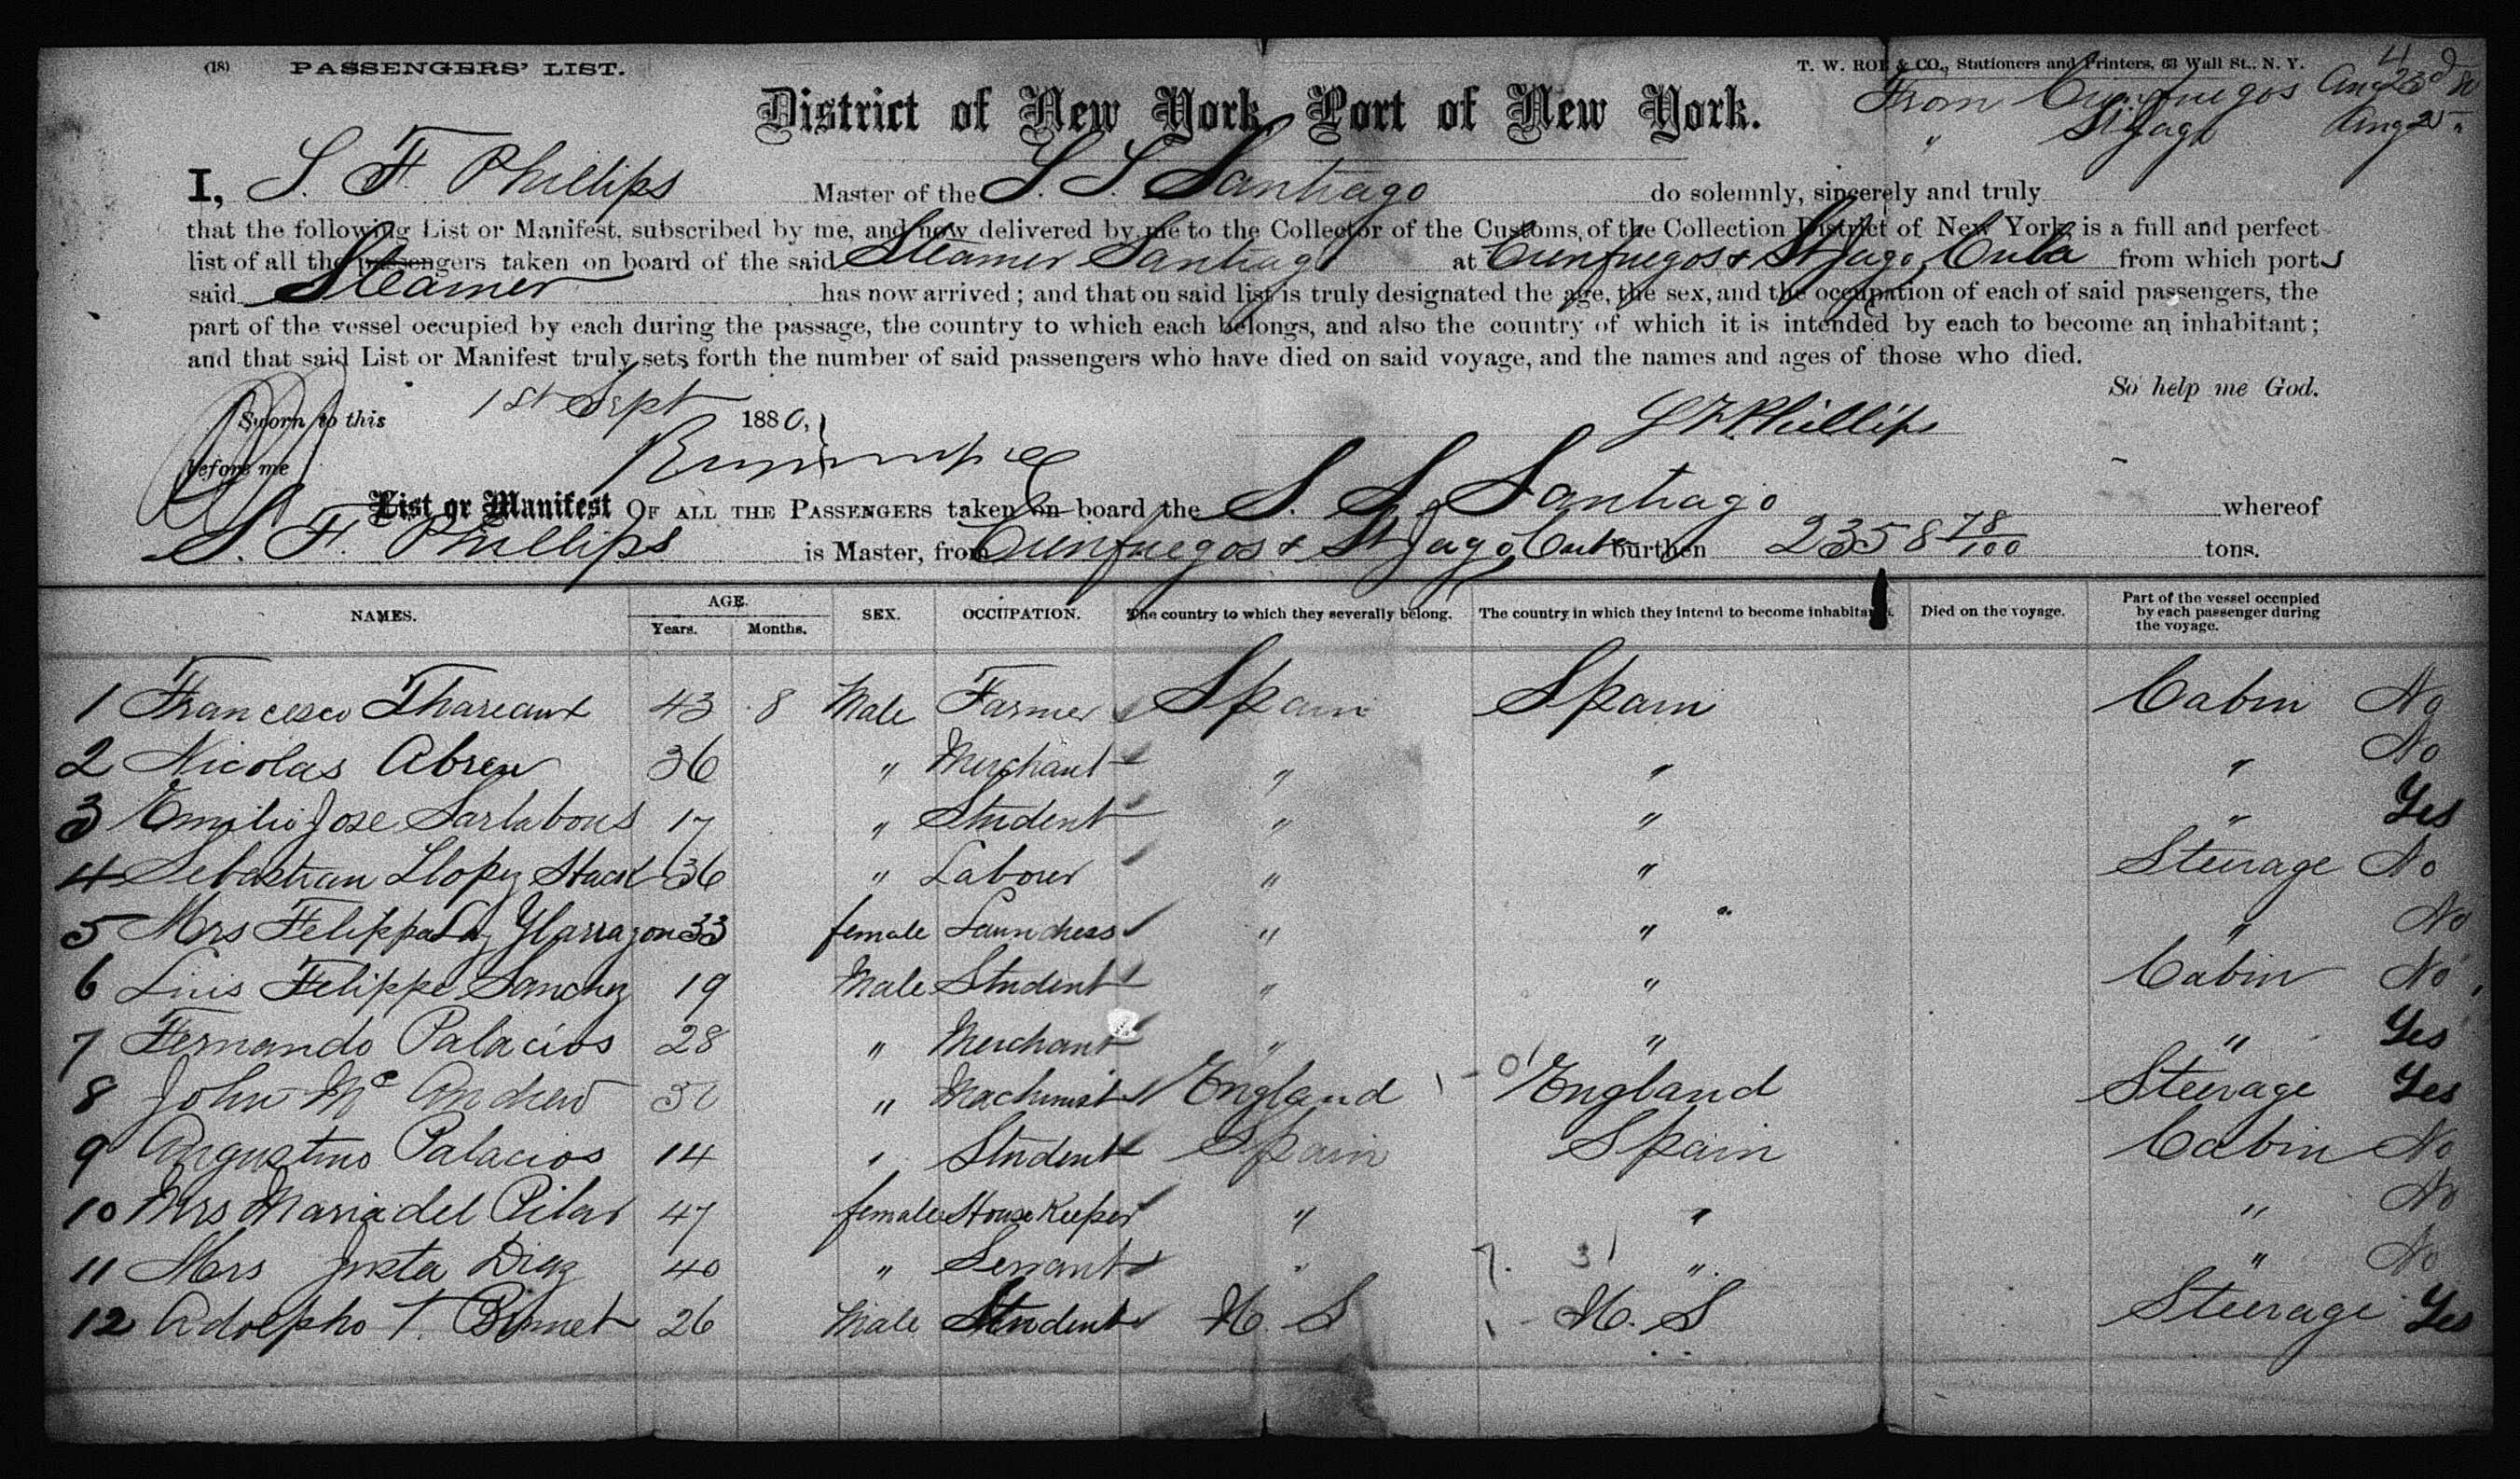 (18) PASSENGERS' LIST.
T. W. ROE & CO., Stationers and Printers, 63 Wall St., N. Y.
District of New York, Port of New York.
From Cienfuegos Aug 23d
" St Jago Aug 25 "
I, S. F. Phillips Master of the S. S. Santiago do solemnly, sincerely and truly
that the following List or Manifest, subscribed by me, and now delivered by me to the Collector of the Customs, of the Collection District of New York, is a full and perfect
list of all the passengers taken on board of the said Steamer Santiago at Cienfuegos & St Jago, Cuba from which ports
said Steamer has now arrived; and that on said list is truly designated the age, the sex, and the occupation of each of said passengers, the
part of the vessel occupied by each during the passage, the country to which each belongs, and also the country of which it is intended by each to become an inhabitant;
and that said List or Manifest truly sets forth the number of said passengers who have died on said voyage, and the names and ages of those who died.
So help me God.
Sworn to this 1st Sept 1880,
S F Phillips
before me
List or Manifest OF ALL THE PASSENGERS taken on board the S. S. Santiago whereof
S. F. Phillips is Master, from Cienfuegos & St Jago, Cuba burthen 2358 78/100 tons.
NAMES. AGE. Years. Months. SEX. OCCUPATION. The country to which they severally belong. The country in which they intend to become inhabitants. Died on the voyage. Part of the vessel occupied by each passenger during the voyage.
1 Francesco Thareaux 43 8 Male Farmer Spain Spain Cabin No
2 Nicolas Abreu 36 " Merchant " " " No
3 Emilio Jose Sarlabous 17 " Student " " " Yes
4 Sebastian Llopiz 36 " Laborer " " Steerage No
5 Mrs Felippa 33 female Laundress " " " No
6 Luis Felippe Sanchez 19 Male Student " " Cabin No
7 Fernando Palacios 28 " Merchant " " " Yes
8 John Mc Andrew " Machinist England England Steerage Yes
9 Angustino Palacios 14 " Student Spain Spain Cabin No
10 Mrs Maria del Pilar 47 female House Keeper " " " No
11 Mrs Justa Diaz 40 " Servant " " " No
12 Adolpho T. Bonnet 26 Male Student U. S U. S Steerage Yes